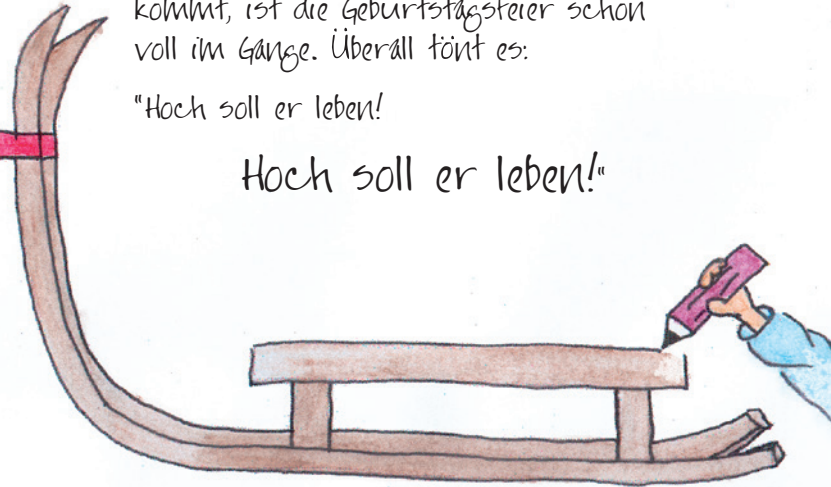 kommt, ist die Geburtstagsfeier schon
voll im Gange. Überall tönt es:
"Hoch soll er leben!
Hoch soll er leben!"